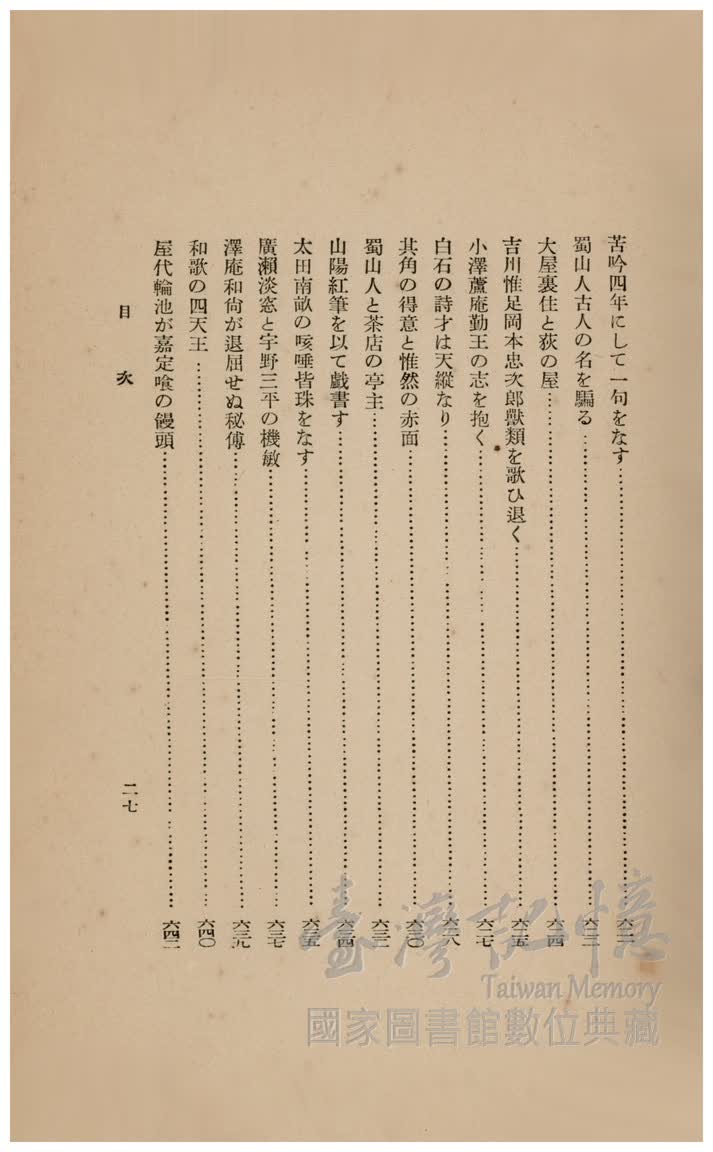 苦吟四年にして一句をなす……六一一
蜀山人古人の名を騙る……六一二
大屋裏住と荻の屋……六一四
吉川惟足岡本忠次郎獸類を歌ひ退く……六一五
小澤蘆庵勤王の志を抱く……六一七
白石の詩才は天縱なり……六一八
其角の得意と惟然の赤面……六三〇
蜀山人と茶店の亭主……六三二
山陽紅筆を以て戲書す……六三四
太田南畝の咳唾皆珠をなす……六三五
廣瀨淡窓と宇野三平の機敏……六三七
澤庵和尙が退屈せぬ秘傳……六三九
和歌の四天王……六四〇
屋代輪池が嘉定喰の饅頭……六四二
目次
二七
臺灣記憶
Taiwan Memory
國家圖書館數位典藏